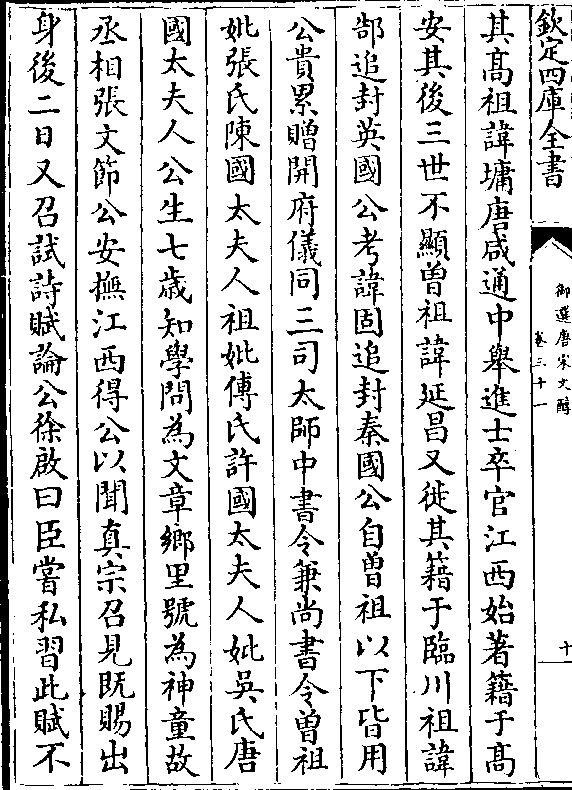 欽定四庫全書
御選唐宋文醇
卷三十一
十
其髙祖諱墉唐咸通中舉進士卒官江西始著籍于髙
安其後三世不顯曽祖諱延昌又徙其籍于臨川祖諱
郜追封英國公考諱固追封秦國公自曽祖以下皆用
公貴累贈開府儀同三司太師中書令兼尚書令曽祖
妣張氏陳國太夫人祖妣傅氏許國太夫人妣吳氏唐
國太夫人公生七歳知學問為文章鄉里號為神童故
丞相張文節公安撫江西得公以聞真宗召見既賜出
身後二日又召試詩賦論公徐啟曰臣嘗私習此賦不